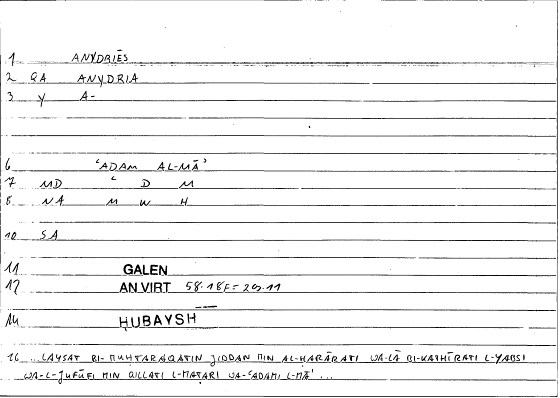 1 ANYDRIĒS
2 GA ANYDRIA
3 Y A-
6 ʿADAM AL-MĀʾ
7 MD ʿ D M
8 NA M W H
10 SA
11 GALEN
12 AN VIRT 58.18F = 20.11
14 ḤUBAYSH
16 LAYSAT BI-MUḤTARAQATIN JIDDAN MIN AL-ḤARĀRATI WA-LĀ BI-KATHĪRATI L-YABSI
WA-L-JUFŪFI MIN QILLATI L-MAṬARI WA-ʿADAMI L-MĀʾ ...